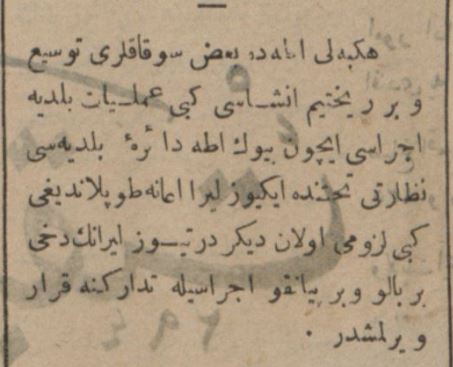 هكبه‌لی اطه‌ده بعض سوقاقلری توسیع
و بر ریختیم انشاسی كبی عملیات بلدیه
اجراسی ایچون بیوك اطه دائرهٔ بلدیه‌سی
نظارتی تحتنده ایكیوز لیرا اعانه طوپلاندیغی
كبی لزومی اولان دیكر درتیوز لیرانك دخی
بر بالو و بر پیانقو اجراسیله تداركنه قرار
ویرلمشدر .